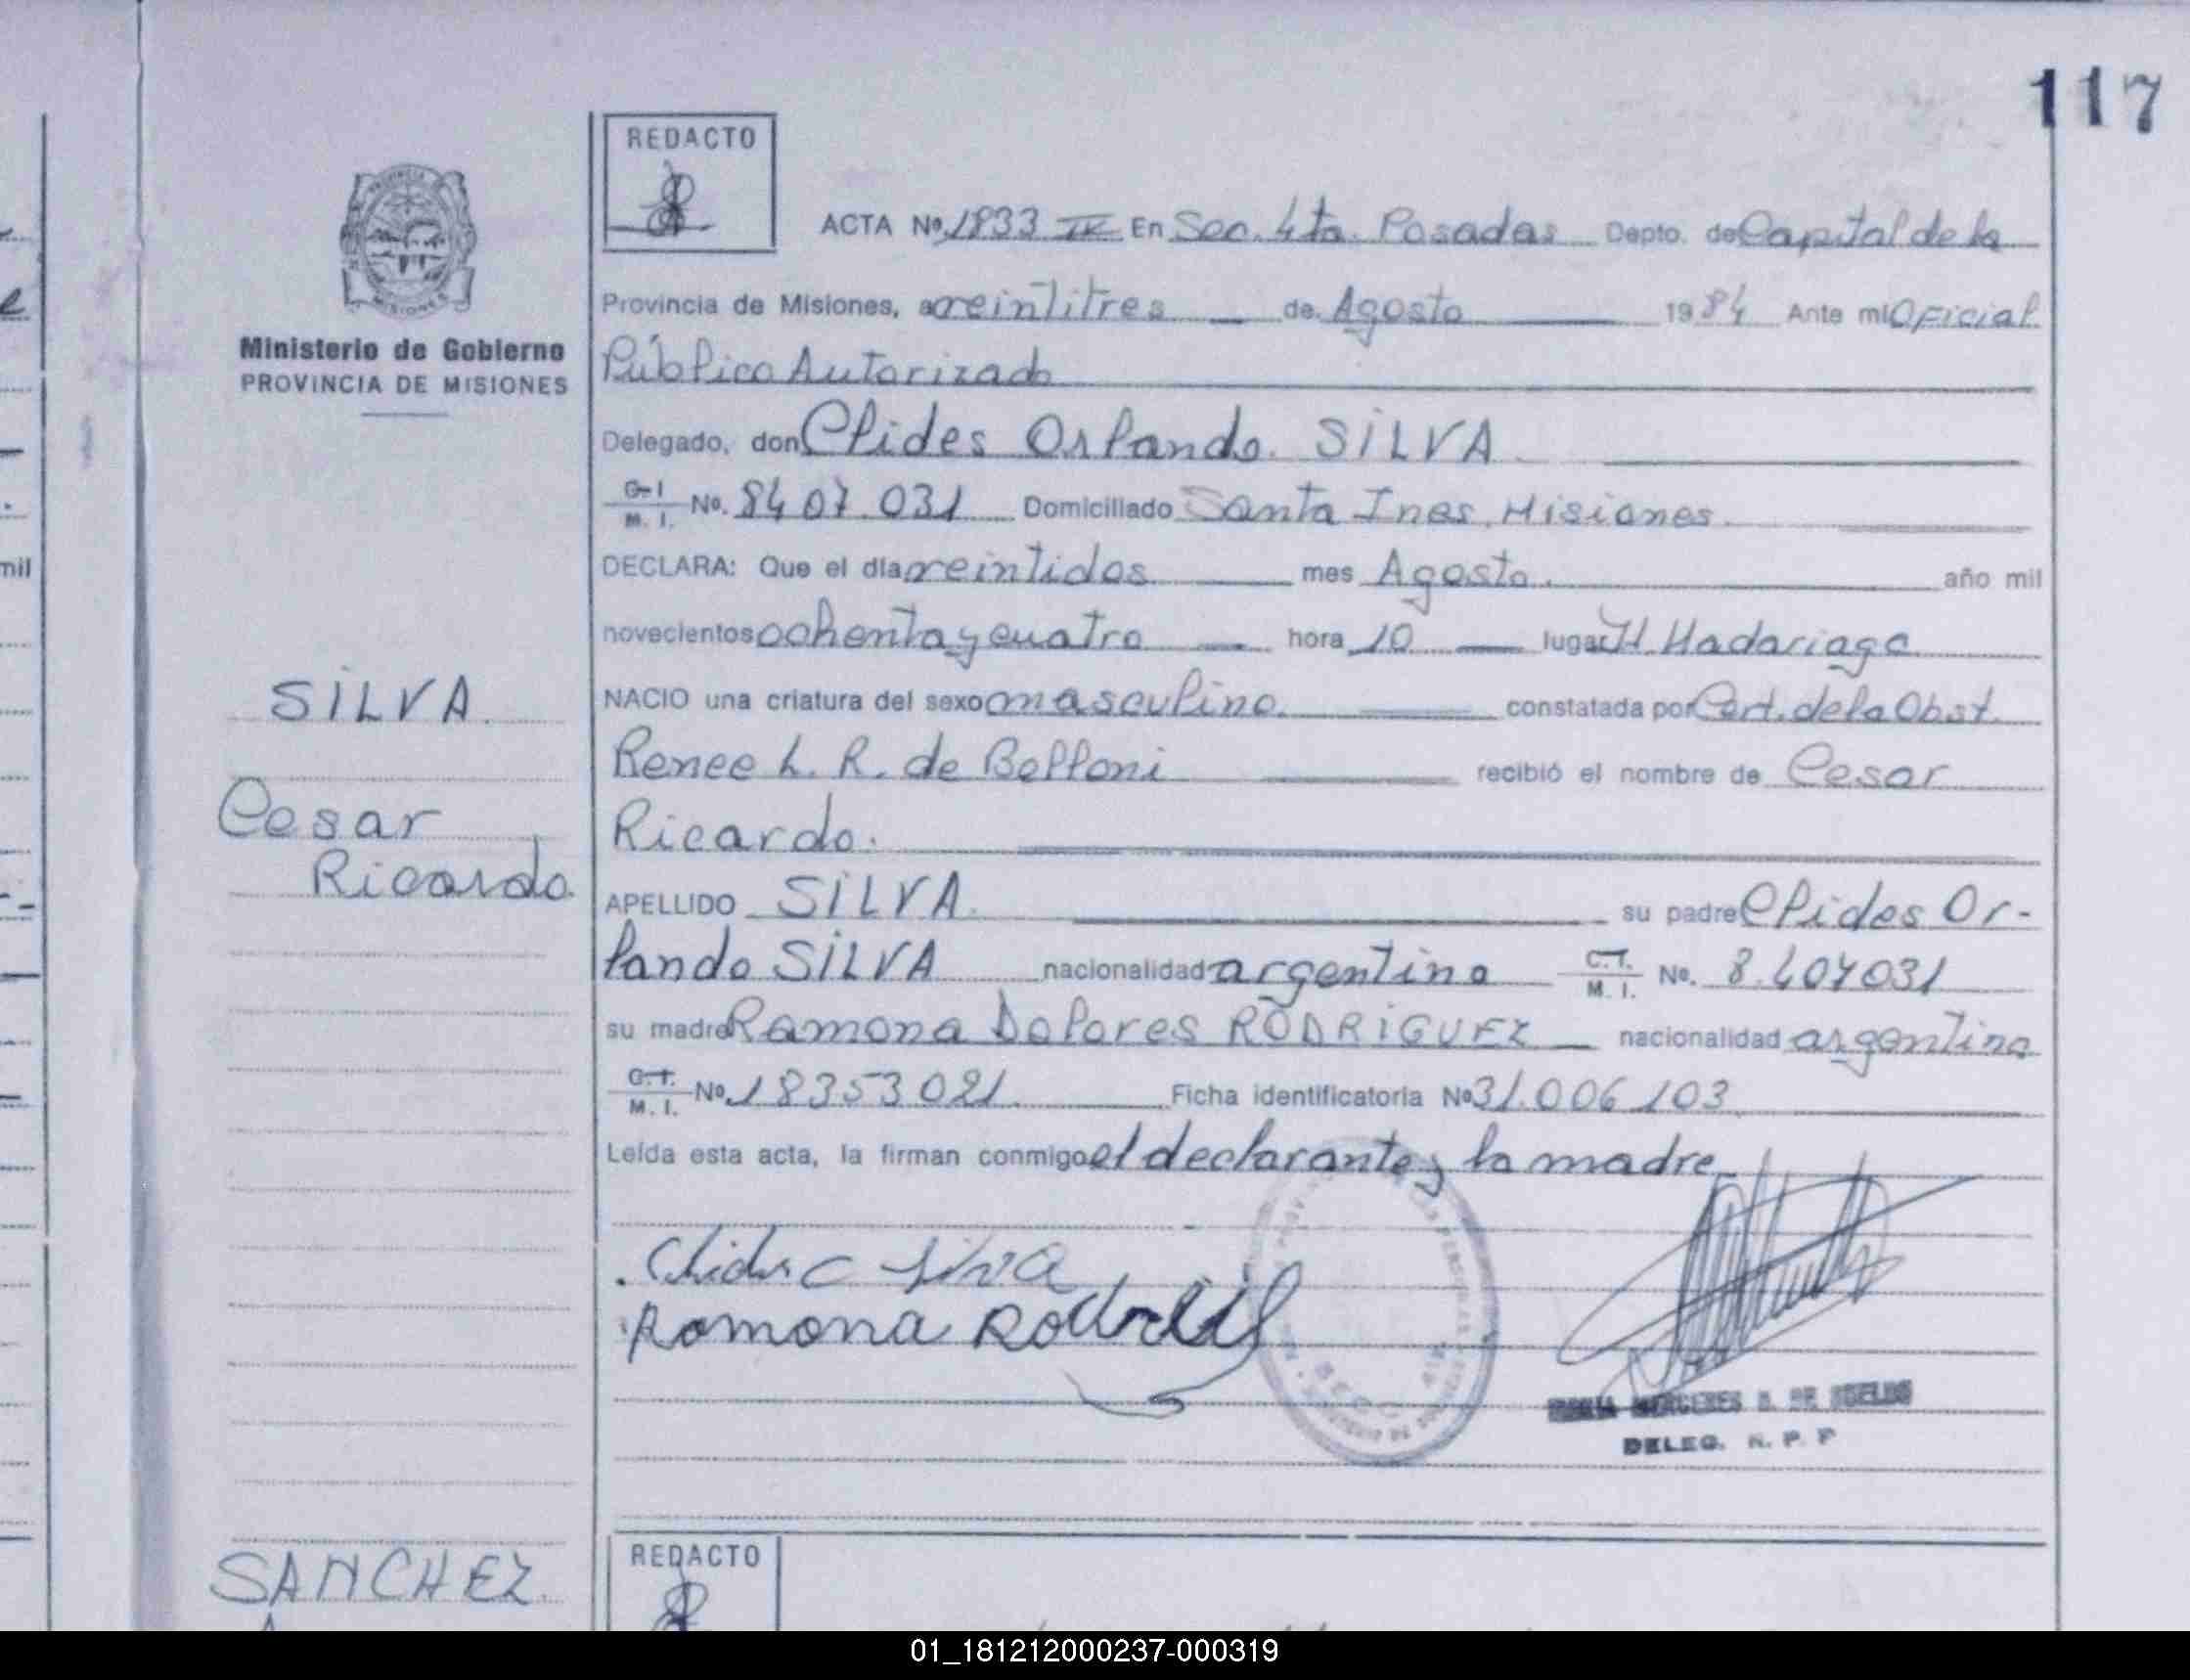 117
REDACTO
ACTA Nº 1833 IV En Sec. 4ta. Posadas Depto. de Capital de la
Provincia de Misiones, a veintitres de Agosto 1984 Ante mi Oficial
Público Autorizado
Ministerio de Gobierno
PROVINCIA DE MISIONES
Delegado, don Clides Orlando SILVA
C.I. M. I. No. 8407.031 Domiciliado Santa Ines, Misiones
DECLARA: Que el día veintidos mes Agosto. año mil
novecientos ochenta y cuatro hora 10 lugar H. Madariaga
SILVA.
NACIO una criatura del sexo masculino. constatada por Cert. de la Obst.
Renee L. R. de Belloni recibió el nombre de Cesar
Cesar
Ricardo.
Ricardo.
APELLIDO SILVA. su padre Clides Or-
lando SILVA nacionalidad argentino C.I. M. I. No. 8.407031
su madre Ramona Dolores RODRIGUEZ nacionalidad argentina
C.I. M. I. No. 18353021. Ficha identificatoria Nº 31.006.103
Leída esta acta, la firman conmigo el declarante y la madre
Silva
Ramona
MERCEDES DE
DELEG. R. P. P
SANCHEZ.
REDACTO
mil
01_181212000237-000319